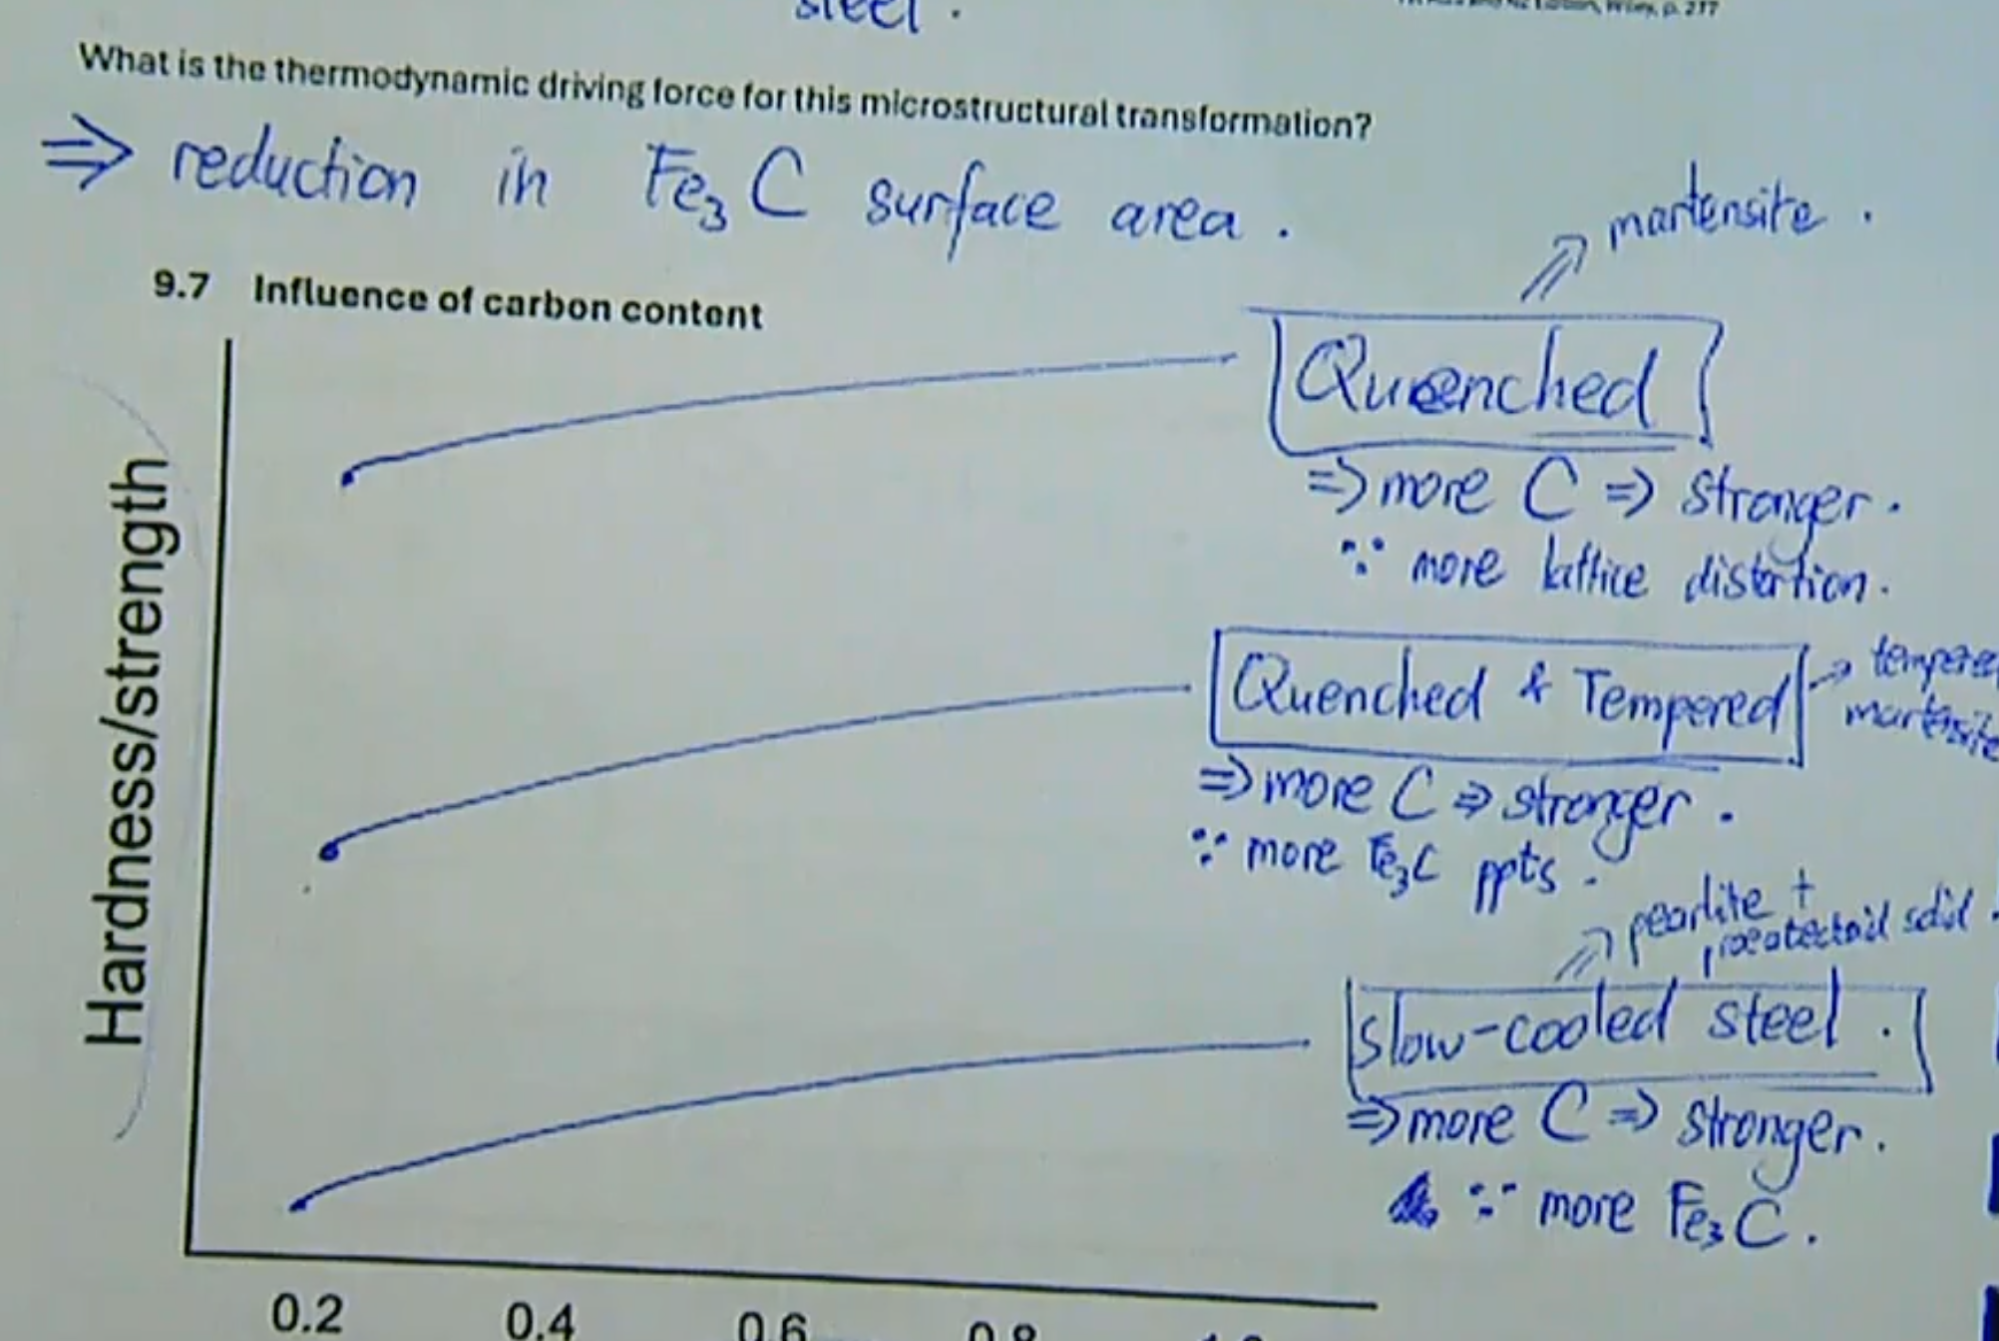 steel.
Wiley, p. 217
What is the thermodynamic driving force for this microstructural transformation?
⇒ reduction in Fe₃C surface area.
martensite.
9.7 Influence of carbon content
Quenched
⇒ more C ⇒ stronger.
∵ more lattice distortion.
Quenched & Tempered
→ tempered
martensite
⇒ more C ⇒ stronger.
∵ more Fe₃C ppts.
pearlite +
proeutectoid solid.
slow-cooled steel.
⇒ more C ⇒ stronger.
∵ more Fe₃C.
Hardness/strength
0.2 0.4 0.6 0.8